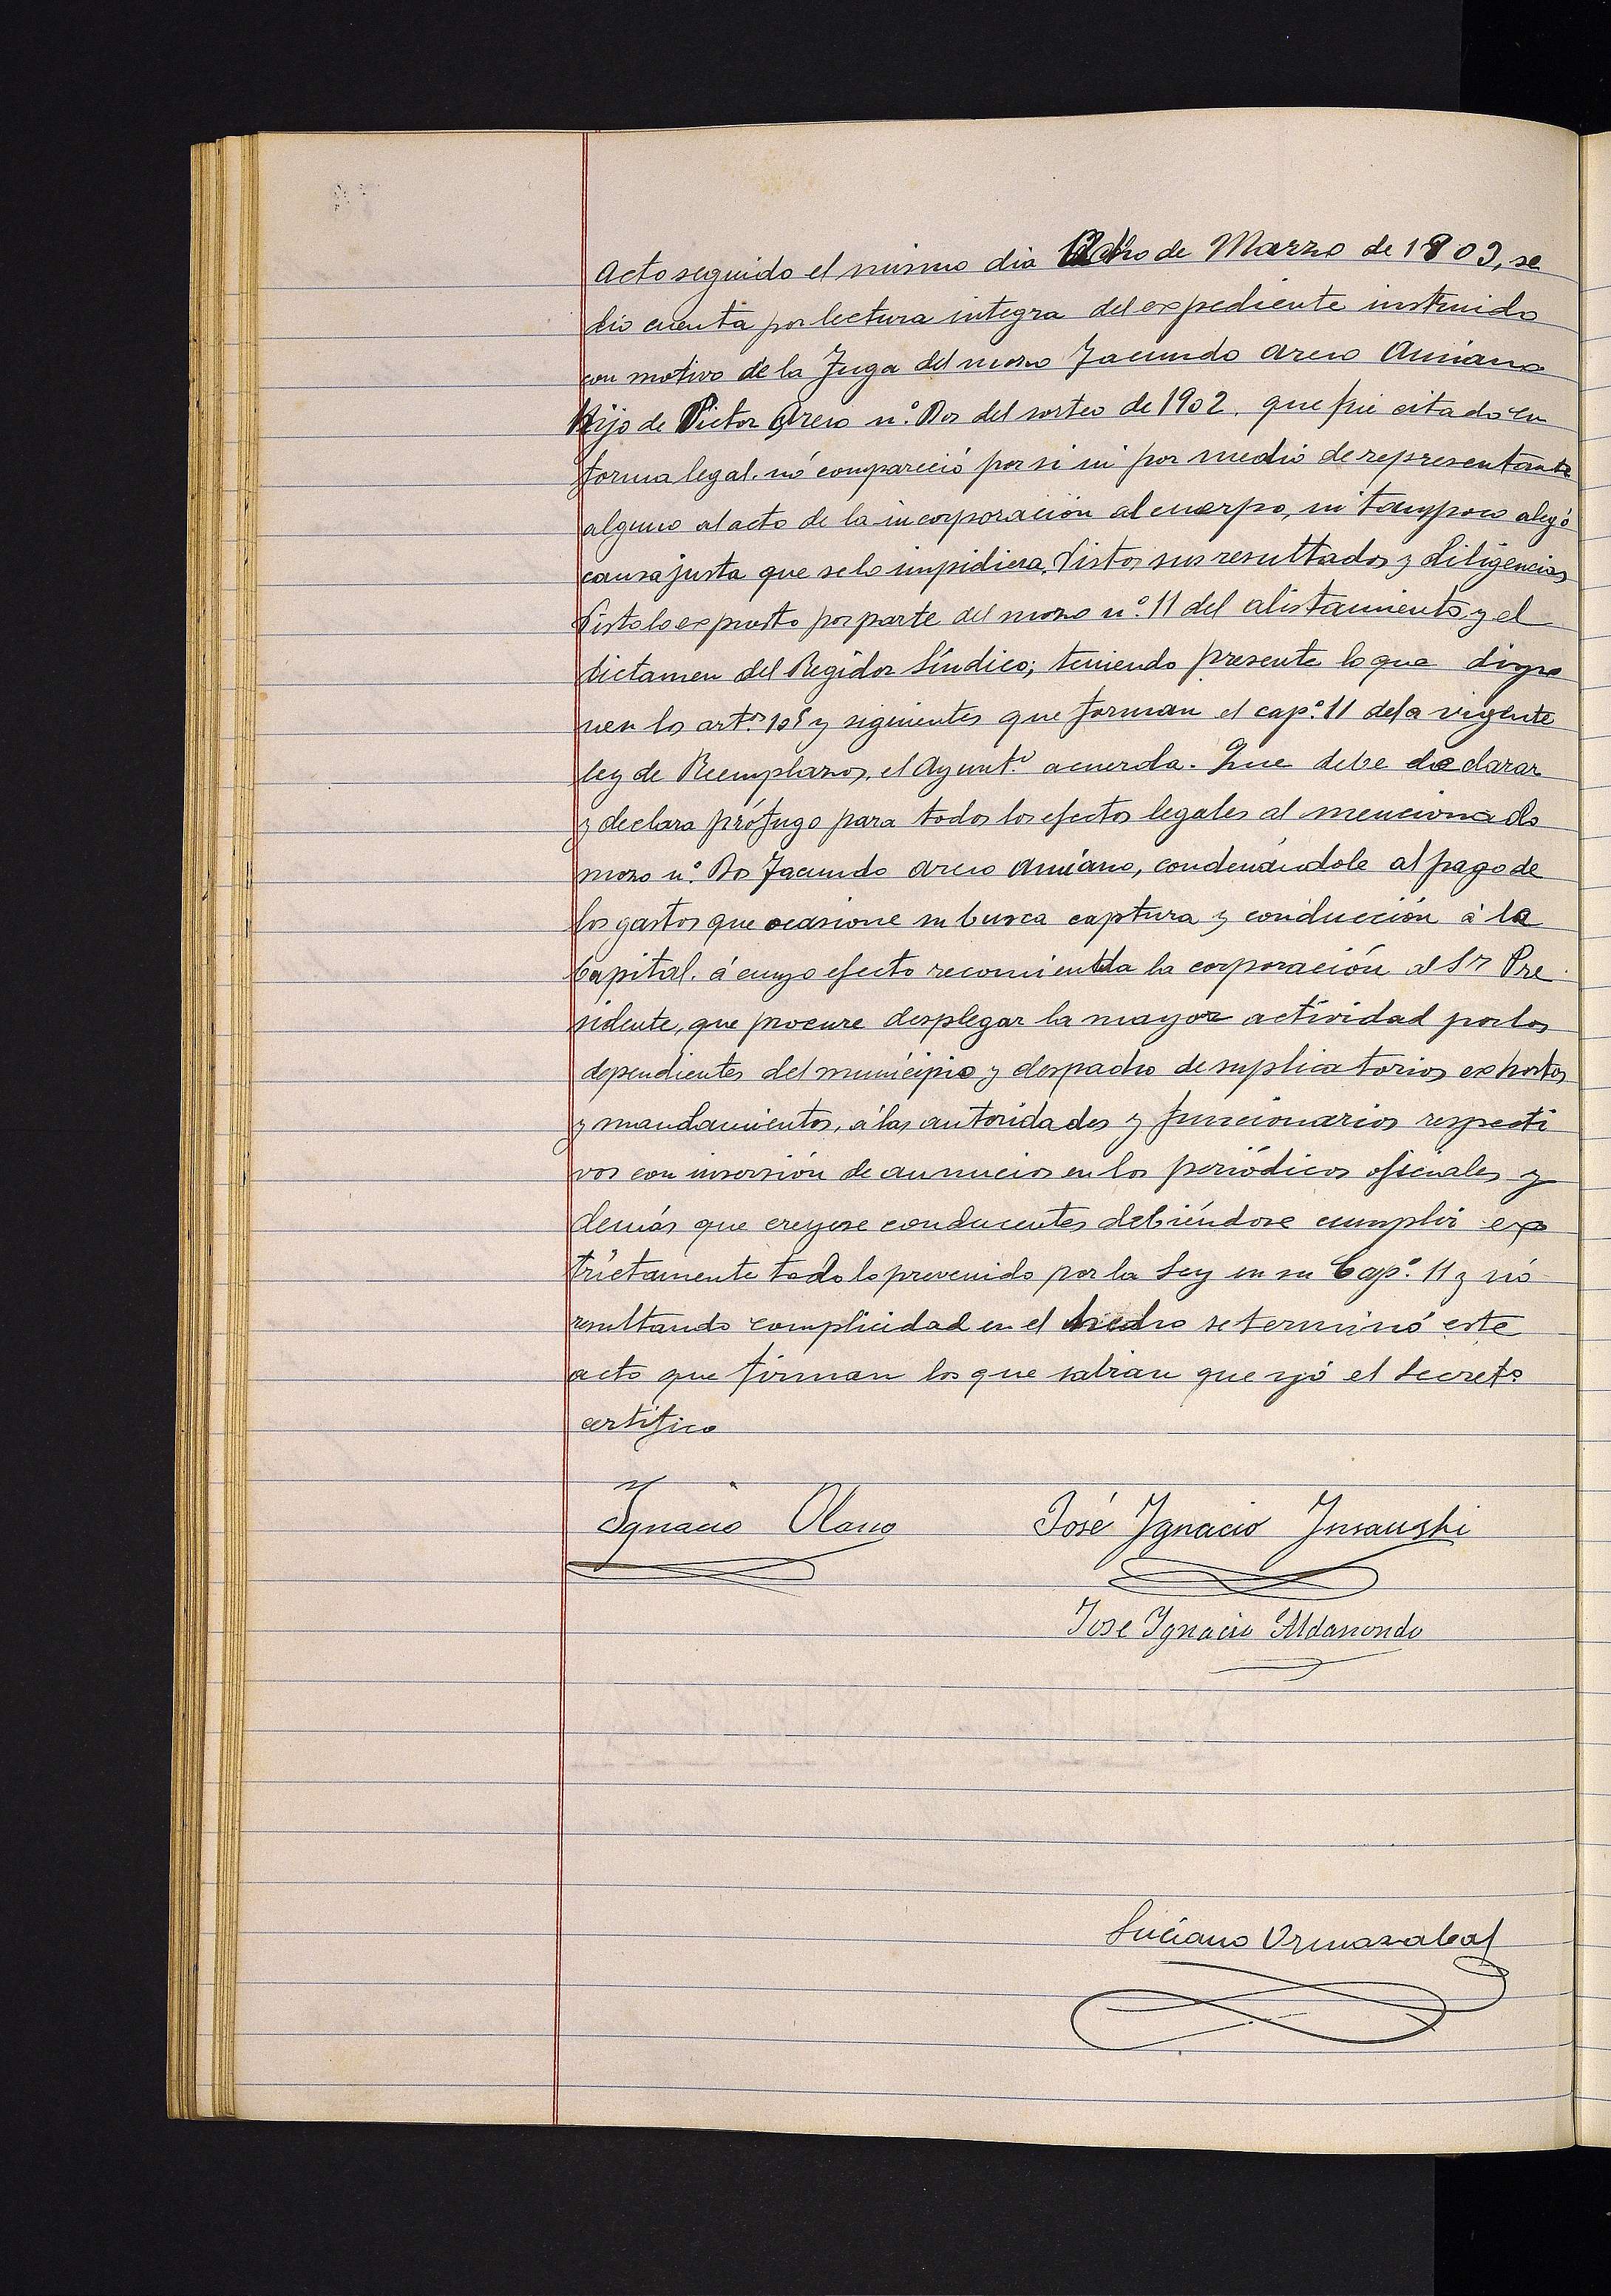 Acto seguido el mismo dia Ocho de Marzo de 1903, se
dio cuenta por lectura integra del expediente instruido
con motivo de la fuga del mozo Facundo Areso Amiano
Hijo de Victor Areso n.º Dos del sorteo de 1902. que fué citado en
forma legal. nó compareció por si ni por medio de representante
alguno al acto de la incorporación al cuerpo, ni tampoco alegó
causa justa que se lo impidiera. Vistos sus resultados y diligencias
Visto lo expuesto por parte del mozo n.º 11 del alistamiento y el
dictamen del Regidor Síndico; teniendo presente lo que dispo
nen los art.os 105 y siguientes que forman el cap.º 11 de la vigente
ley de Reemplazos, el Ayunt.º acuerda. Que debe declarar
y declara prófugo para todos los efectos legales al mencionado
mozo n.º Dos Facundo Areso Amiano, condenándole al pago de
los gastos que ocasione su busca captura y conducción á la
Capital. á cuyo efecto recomienda la corporación al Sr Pre
sidente, que procure desplegar la mayor actividad por los
dependientes del municipio y despacho de suplicatorios exhortos
y mandamientos, á las autoridades y funcionarios respecti
vos con inserción de anuncios en los periódicos oficiales y
demás que creyese conducentes debiéndose cumplir ex
trictamente todo lo prevenido por la Ley en su Cap.º 11 y nó
resultando complicidad en el hecho se terminó este
acto que firman los que sabian que yó el Secret.º
certifico
Ignacio Olano José Ygnacio Ynsausti
Jose Ygnacio Aldasondo
Luciano Ormazabal